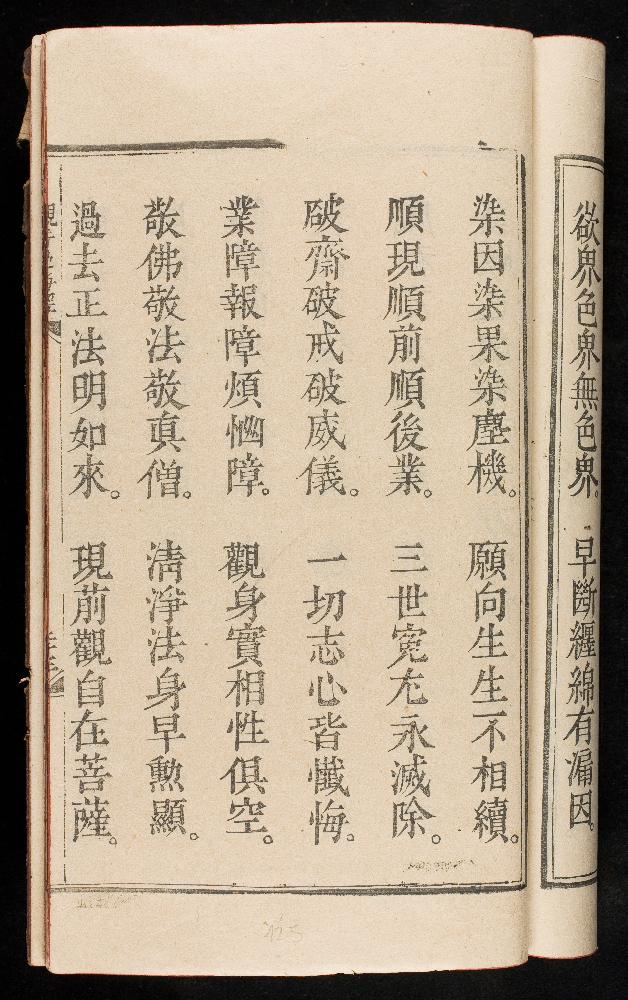 欲界色界無色界。早斷纏綿有漏因。
染因染果染塵機。願向生生不相續。
順現順前順後業。三世冤尤永滅除。
破齋破戒破威儀。一切志心皆懺悔。
業障報障煩惱障。觀身實相性俱空。
敬佛敬法敬眞僧。淸淨法身早勲顯。
過去正法明如來。現前觀自在菩薩。